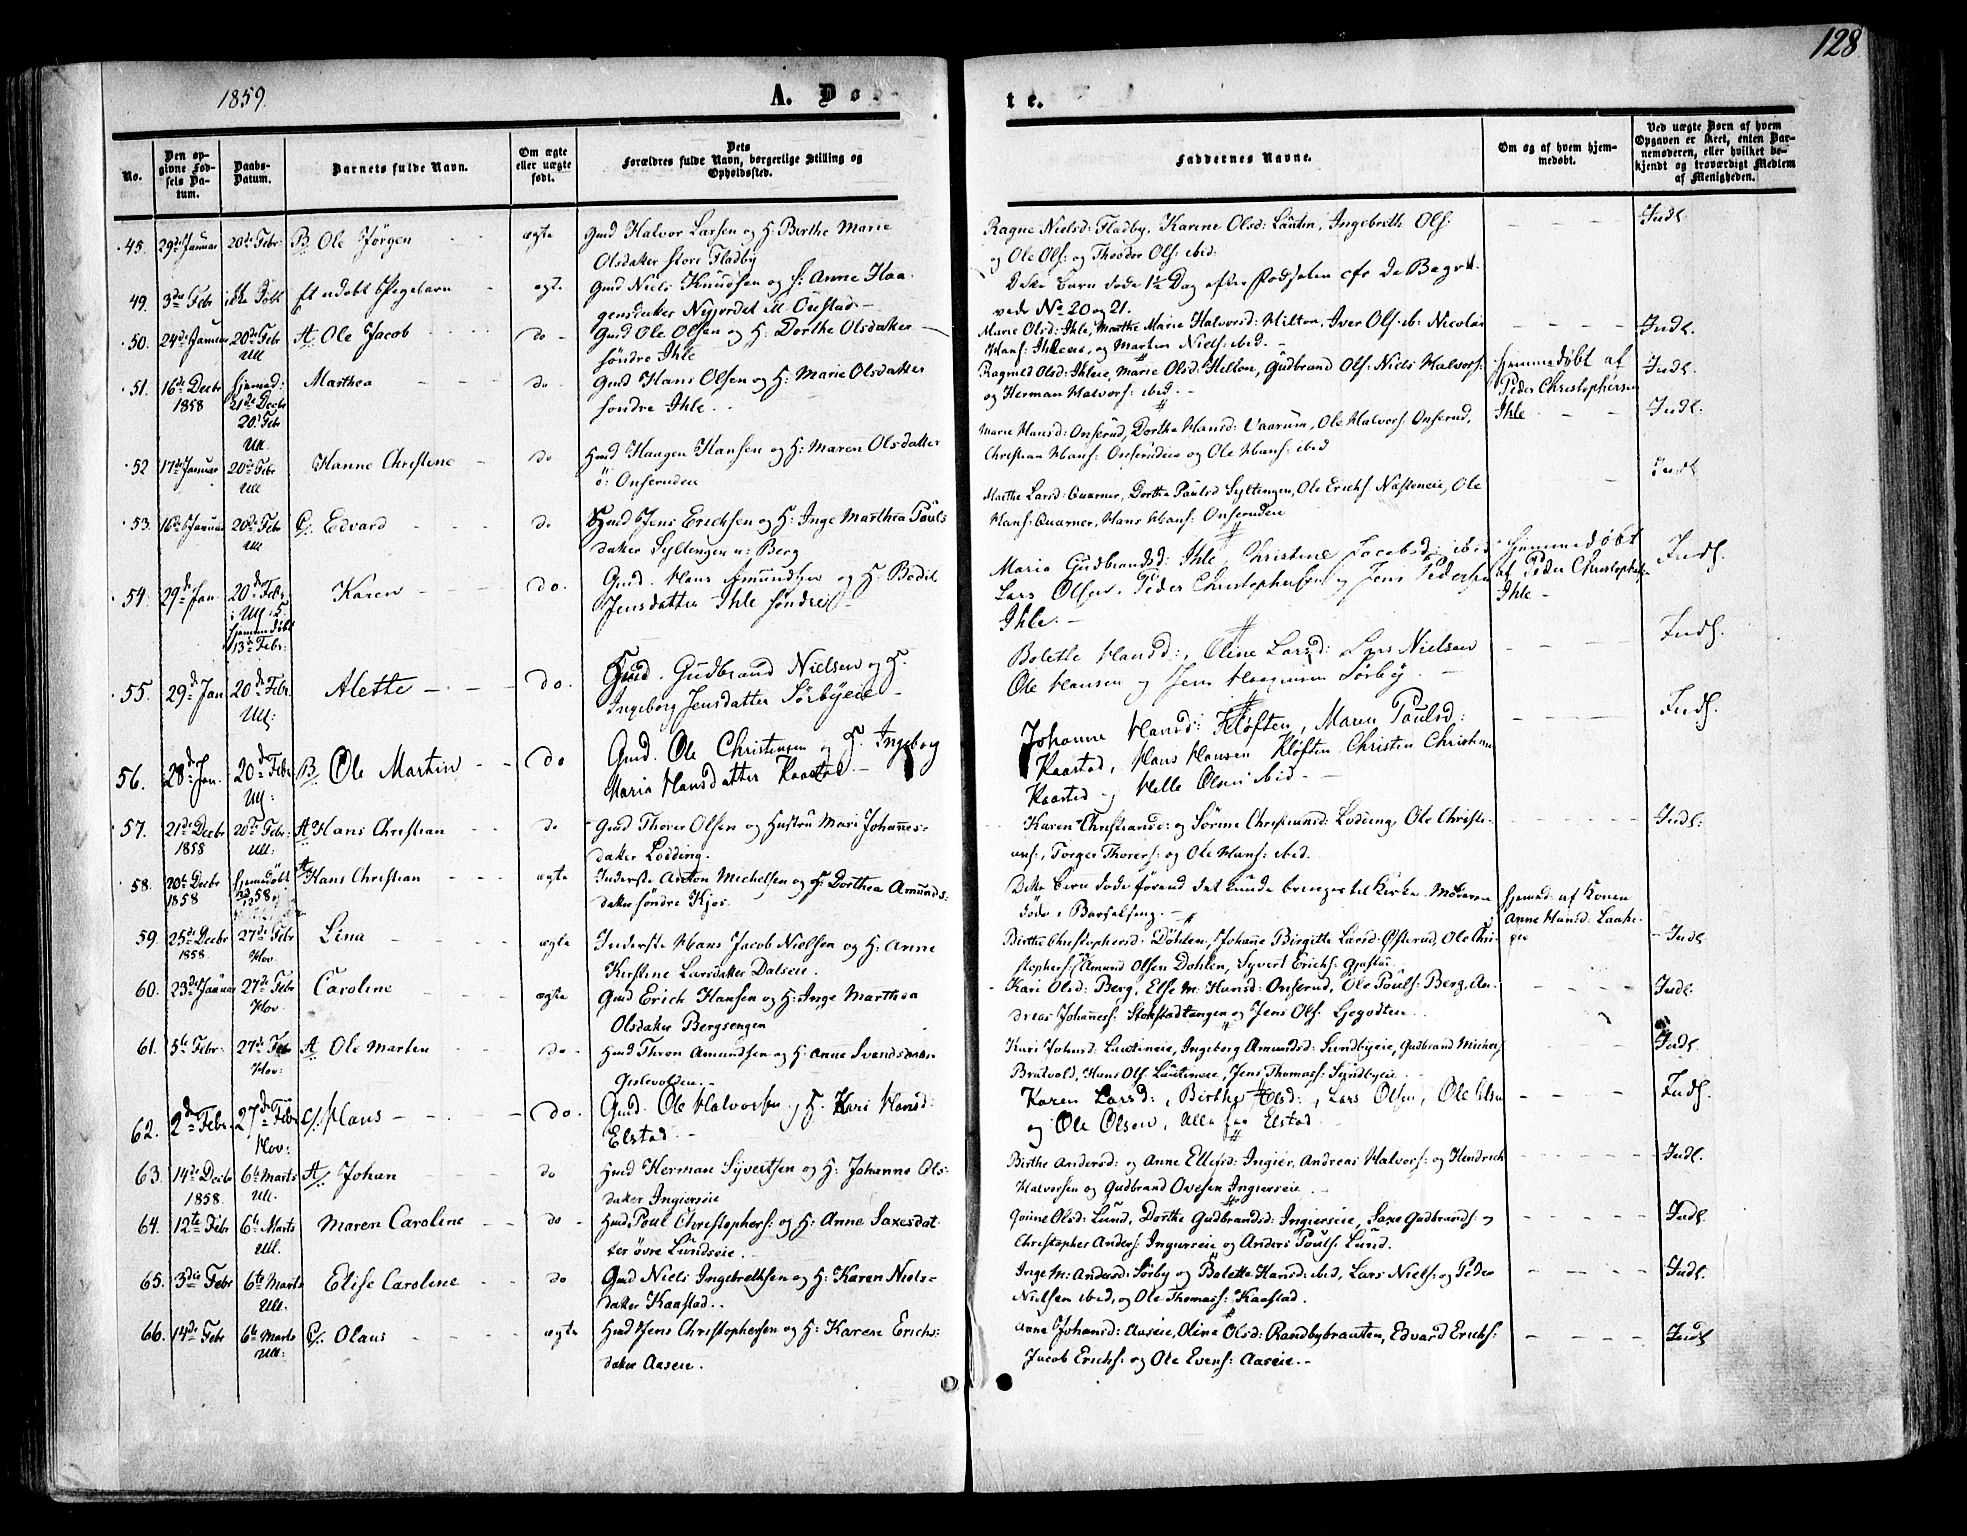 128
1859.
A. Dø-
te.
No.
Den opgivne Fødsels Datum.
Daabs-Datum.
Barnets fulde Navn.
Om ægte eller uægte født.
Dets Forældres fulde Navn, borgerlige Stilling og Opholdssted.
Faddernes Navne.
Om og af hvem hjemmedøbt.
Ved uægte Børn af hvem Opgaven er skeet, enten Barnemoderen, eller hvilket bekjendt og troværdigt Medlem af Menigheden.
45. 29de Januar 20de Febr B. Ole Jørgen ægte Gmd Halvor Larsen og H: Berthe Marie
Olsdatter store Fladby
Ragne Nielsd: Fladby, Karine Olsd: Lautin, Ingebreth Ols:
og Ole Ols: og Theodor Ols: ibid: Indl.
49. 3die Febr ikke Døbt Et udøbt Pigebarn ægte Gmd Niels Knudsen og H: Anne Haa-
gensdatter Nyjordet
Dette Barn døde 1½ Dag efter Fødselen cfr de Begra-
vede No 20 og 21.
50. 24de Januar 20de Febr Ull A. Ole Jacob do Gmd Ole Olsen og H: Dorthe Olsdatter
søndre Ihle
Marie Olsd: Ihle, Marthe Marie Halvorsd: Hilton, Iver Ols: ib: Nicolai
Hans: Ihleeie, og Martin Niels: ibid. Indl.
51. 16de Decbr 1858 hjemmed: 21de Decbr 20de Febr Ull Marthea do Gmd Hans Olsen og H: Marie Olsdatter
søndre Ihle
Ragnild Olsd: Ihleie, Marie Olsd: Hilton, Gudbrand Ols: Niels Halvors:
og Herman Halvors: ibid.
Hjemmedøbt af
Peder Christophersen
Ihle Indl.
52 17de Januar 20de Febr Ull Hanne Christine do Hmd Haagen Hansen og H: Maren Olsdatter
ö: Onserudeie
Marie Hansd: Onserud, Dorthe Hansd: Vaarum, Ole Halvors: Onserud,
Christian Hans: Onserudeie og Ole Hans: ibid Indl.
53. 16de Januar 20de Febr Ull C. Edvard do Hmd Jens Erichsen og H: Inge Marthea Pouls
datter Syltengen u: Berg
Marthe Larsd: Quarner, Dorthe Paulsd Syltengen, Ole Erichs: Næsteneie, Ole
Hans: Quarner, Hans Hans: Onserudeie Indl
54. 29de Jan. 20de Febr. i Ull. hjemmedøbt 13de Febr: Karen do. Gmd. Hans Amundsen og H. Bodil
Jensdatter Ihle søndre
Maria Gudbrandsd: Ihle, Christine Jacobsd: ibid
Lars Olsen, Peder Christophersen og Jens Pedersen
Ihle.
Hjemmedøbt
af Peder Christophers:
Ihle Indl.
55. 29de Jan 20de Febr. Ull: Alette do. Gmd. Gudbrand Nielsen og H.
Ingeborg Jensdatter Sørbyeie
Bolette Hansd:, Oline Larsd: Lars Nielsen
Ole Hansen og Jens Haagensen Sørby. Indl.
56. 28de Jan. 20de Febr Ull: B. Ole Martin do Gmd. Ole Christensen og H. Ingeborg
Maria Hansdatter Kaastad
Johanne Hansd: Kløften, Maren Poulsd:
Kaastad, Hans Hansen Kløften, Christen Christians
Kaastad og Helle Olsen ibid. Indl.
57. 21de Decbr 1858 20de Febr: Ull: A. Hans Christian do Gmd Thorer Olsen og Hustru Mari Johannes-
datter Lodding.
Karen Christiansd: og Sørine Christiansd: Lodding, Ole Christi-
ans:, Torger Thorers: og Ole Hans: ibid. Indl:
58. 20de Decbr 1858 hjemdøbt A. Hans Christian ægte Inderste Anton Michelsen og H: Dorthea Amunds-
datter søndre Kjos.
Dette Barn døde førend det kunde bringes til Kirke. Moderen
døde i Barselseng.
Hjemd: af Konen
Anne Hansd. Laake-
eie
59. 25de Decbr 1858. 27de Febr Hov. Lina ægte Inderste Hans Jacob Nielsen og H: Anne
Kirstine Larsdatter Dalseie.
Birthe Christophersd: Döhlen, Johanne Birgitte Larsd: Østerud, Ole Chri-
stophers: Amund Olsen Dohlen, Syvert Erichs: Gjestad Indl
60. 23de Januar 27de Febr Hov. Caroline ægte Gmd Erich Hansen og H: Inge Marthea
Olsdatter Bergsengen
Kari Olsd: Berg, Else M: Hansd: Onserud, Ole Pouls: Berg, An-
dreas Johannes: Stokstadtangen og Jens Ols: Indl:
61. 5te Febr: 27de Feb Hov: A. Ole Martin do Hmd Thron Amundsen og H: Anne Svendsdatter
Gislevolden.
Kari Johnsd: Lautineie, Ingeborg Amundsd: Sundbyeie, Gudbrand Michels:
Bratvold, Hans Ols: Lautineie, Jens Thomass: Sundbyeie Indl.
62. 2de Febr. 27de Febr Hov: C. Hans do. Gmd. Ole Halvorsen og H. Kari Hansd:
Elstad.
Karen Larsd:, Birthe Olsd:, Lars Olsen, Ole Olsen
og Ole Olsen, Alle fra Elstad Indl.
63. 14de Decbr 1858. 6te Marts Ull. A. Johan do Hmd Herman Syvertsen og H: Johanne Ols-
datter Ingierseie
Birthe Andersd: og Anne Ellefsd: Ingier, Andreas Halvors: og Hendrich
Halvorsen og Gudbrand Ovesen Ingierseie. Indl.
64. 12te Febr 6te Marts Ull. Maren Caroline do Hmd Poul Christophers: og H: Anne Saxesdat-
ter övre Lundseie.
Olsd: Lund, Dorthe Gudbrandsd: Ingierseie, Saxe Gudbrands: og
Christopher Anders: Ingierseie og Anders Pouls: Lund. Indl.
65. 3die Febr 6te Marts Ull: Elise Caroline do Gmd Niels Ingebrethsen og H: Karen Niels-
datter Kaastad.
Inge M: Andersd: Sørby og Bolette Hansd: ibid, Lars Niels: og Peder
Nielsen ibid, og Ole Thomass: Kaastad. Indl.
66. 14de Febr 6te Marts Ull: C. Olaus ægte Hmd Jens Christophersen og H: Karen Erichs:
datter Aaseie.
Anne Johansd: Aaseie, Oline Olsd: Randbybraaten, Edvard Erichs:
Jacob Erichs: og Ole Evens: Aaseie. Indl